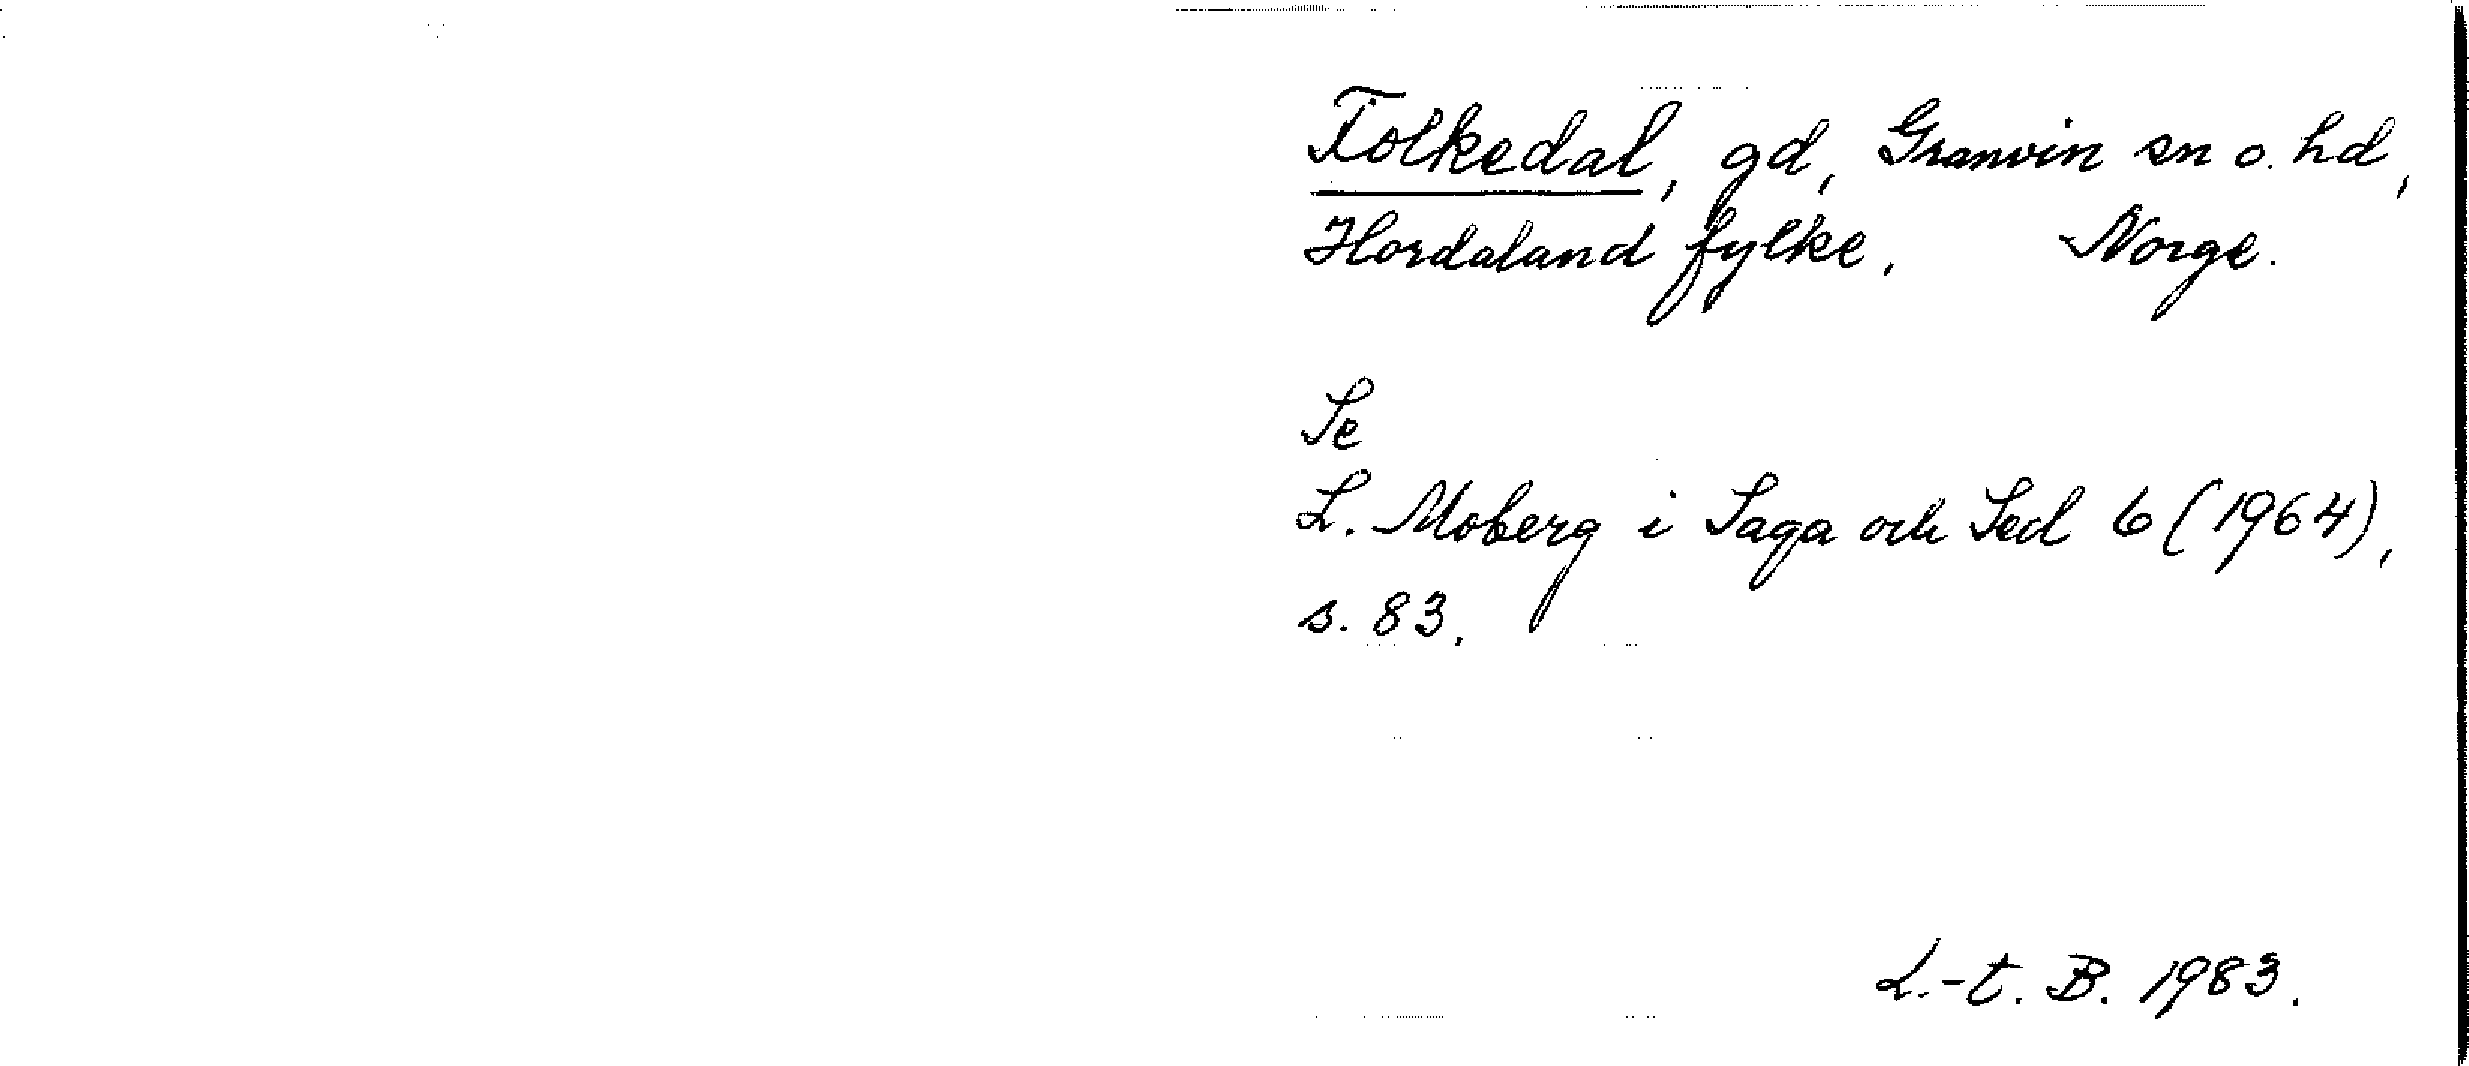 Folkedal, gd, Granvin sn o. hd,
Hordaland fylke. Norge.
Se
L. Moberg i Saga och Sed 6 (1964),
s. 83.
L.-t. B. 1983.